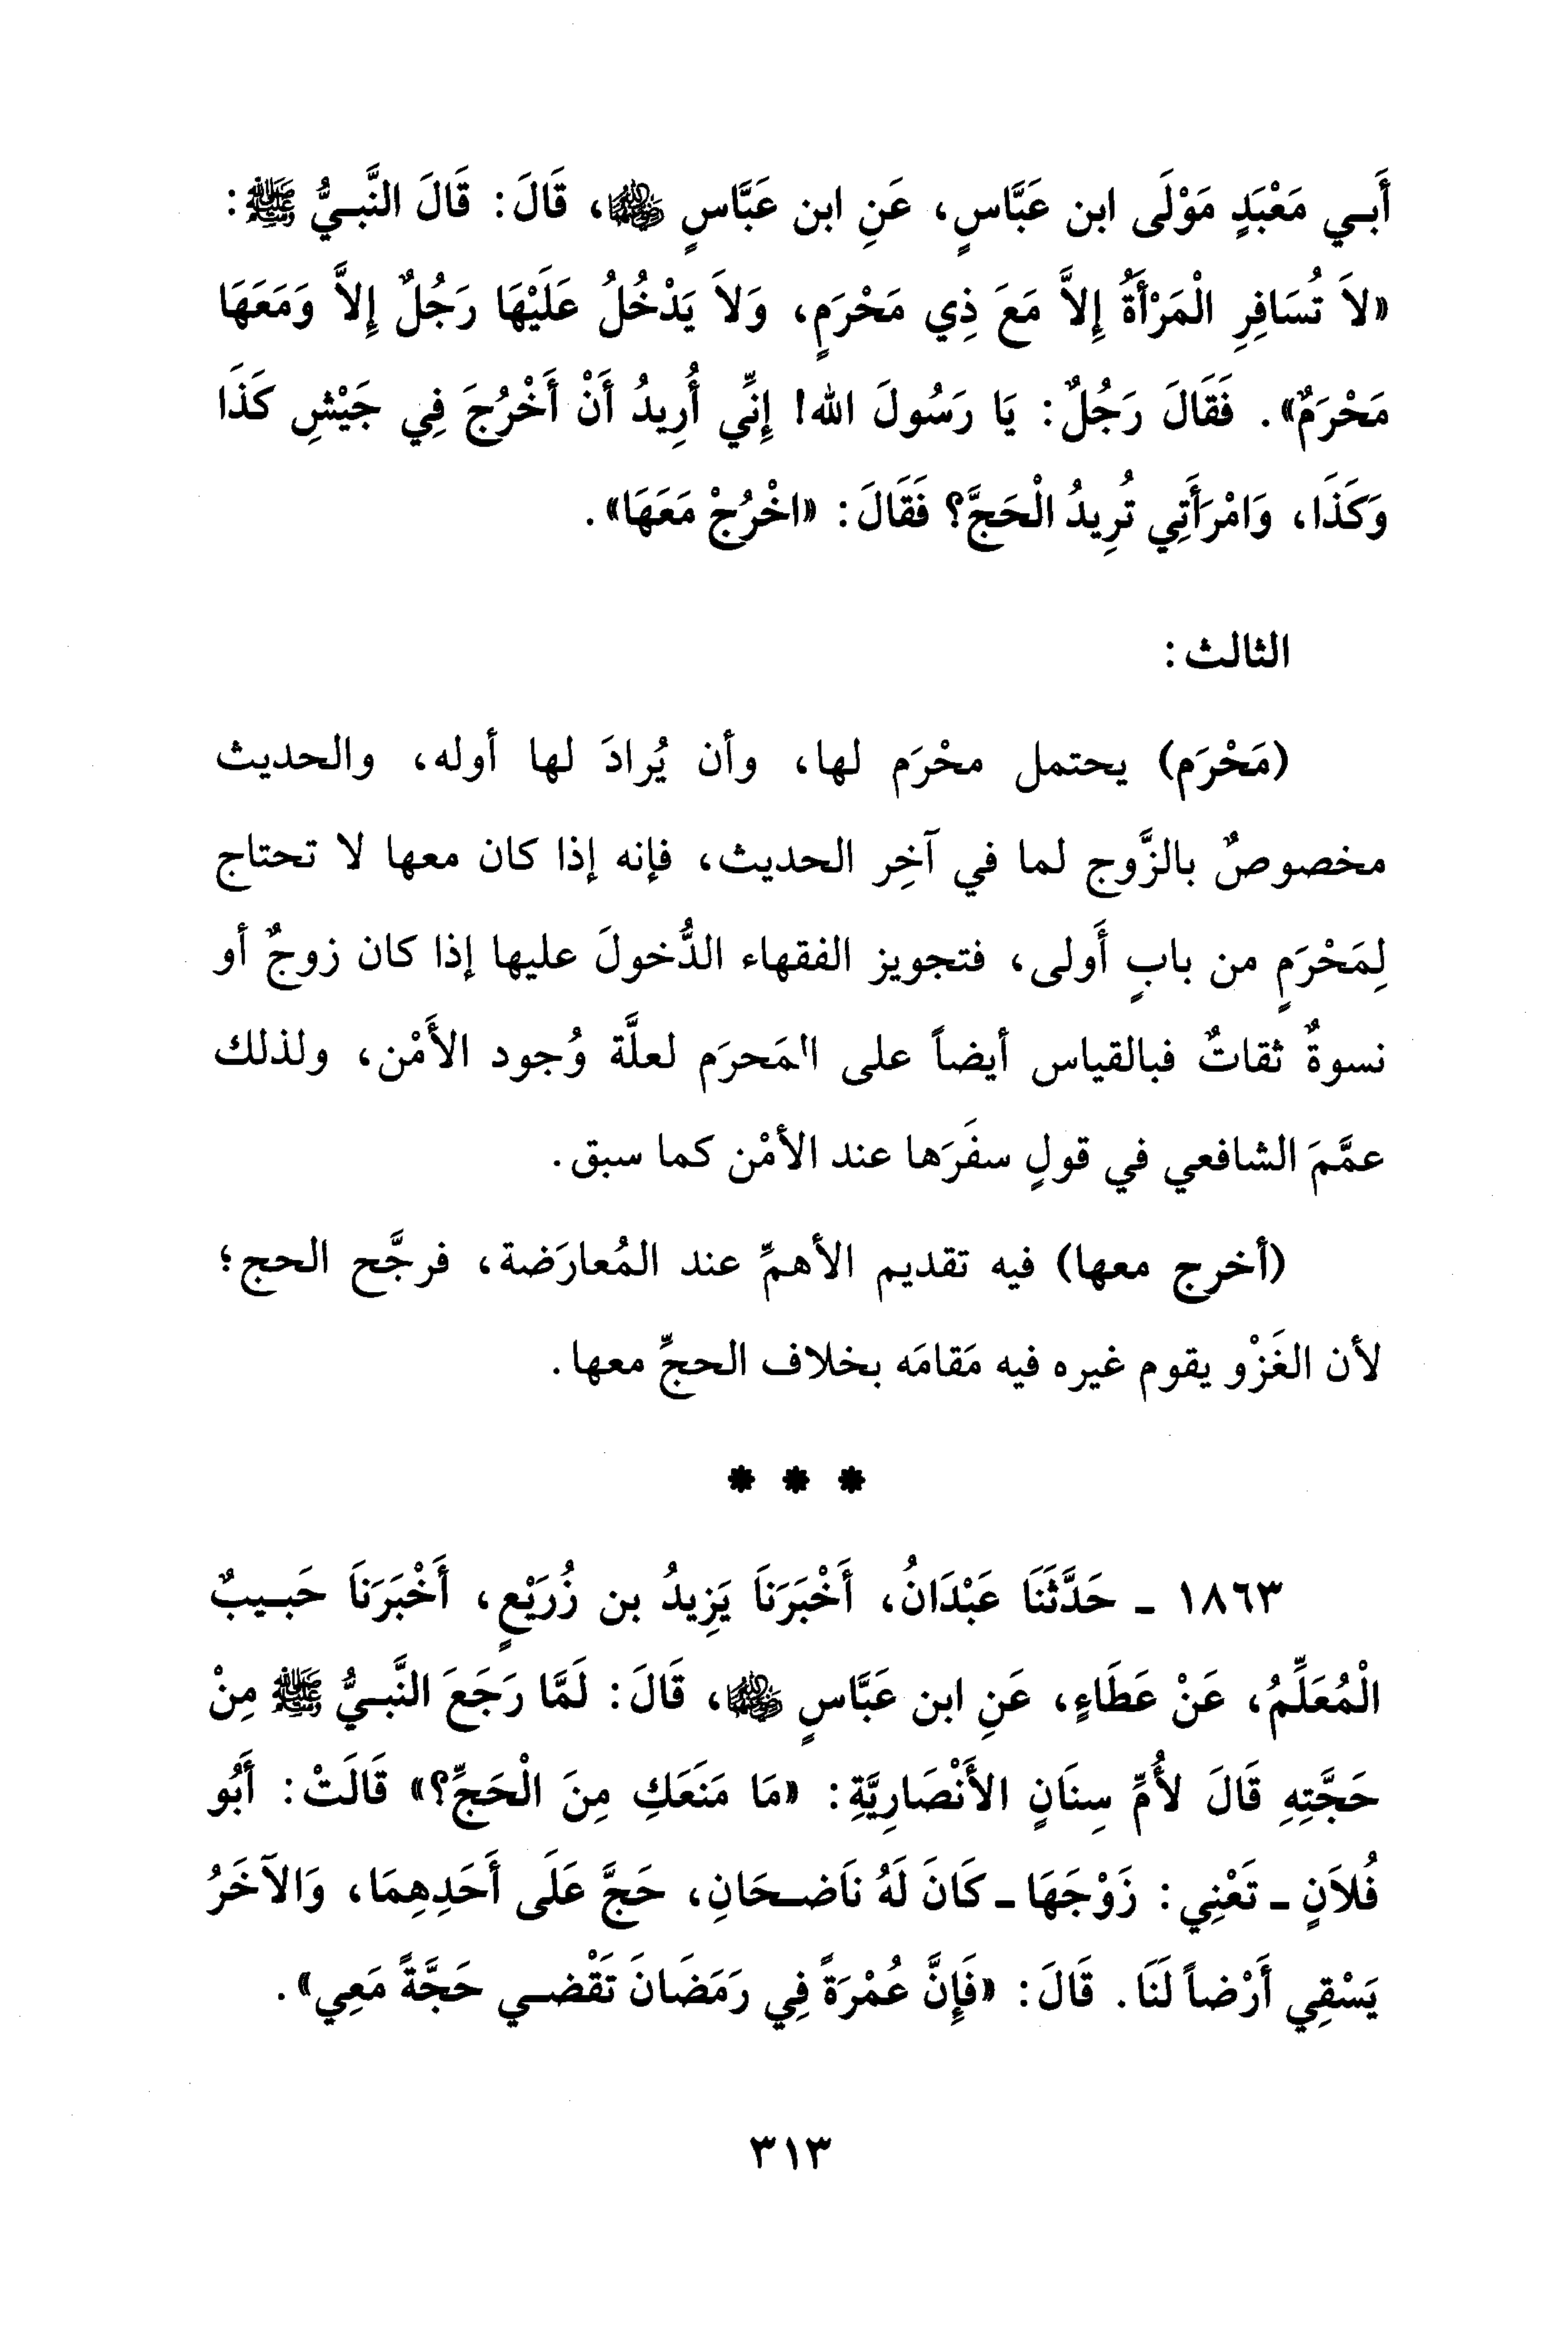 أَبِـي مَعْبَدٍ مَوْلَى ابن عَبَّاسٍ، عَنِ ابن عَبَّاسٍ ﵄، قَالَ: قَالَ النَّبِـيُّ ﷺ:
«لاَ تُسَافِرِ الْمَرْأَةُ إِلاَّ مَعَ ذِي مَحْرَمٍ، وَلاَ يَدْخُلُ عَلَيْهَا رَجُلٌ إِلاَّ وَمَعَهَا
مَحْرَمٌ». فَقَالَ رَجُلٌ: يَا رَسُولَ الله! إِنِّي أُرِيدُ أَنْ أَخْرُجَ فِي جَيْشِ كَذَا
وَكَذَا، وَامْرَأَتِي تُرِيدُ الْحَجَّ؟ فَقَالَ: «اخْرُجْ مَعَهَا».
الثالث:
(مَحْرَم) يحتمل محْرَم لها، وأن يُرادَ لها أوله، والحديث
مخصوصٌ بالزَّوج لما في آخِر الحديث، فإنه إذا كان معها لا تحتاج
لِمَحْرَمٍ من بابٍ أَولى، فتجويز الفقهاء الدُّخولَ عليها إذا كان زوجٌ أو
نسوةٌ ثقاتٌ فبالقياس أيضاً على المَحرَم لعلَّة وُجود الأَمْن، ولذلك
عمَّمَ الشافعي في قولٍ سفَرَها عند الأمْن كما سبق.
(أخرج معها) فيه تقديم الأهمِّ عند المُعارَضة، فرجَّح الحج؛
لأن الغَزْو يقوم غيره فيه مَقامَه بخلاف الحجِّ معها.
* * *
١٨٦٣ ـ حَدَّثَنَا عَبْدَانُ، أَخْبَرَنَا يَزِيدُ بن زُرَيْعٍ، أَخْبَرَنَا حَبـيبٌ
الْمُعَلِّمُ، عَنْ عَطَاءٍ، عَنِ ابن عَبَّاسٍ ﵄، قَالَ: لَمَّا رَجَعَ النَّبِـيُّ ﷺ مِنْ
حَجَّتِهِ قَالَ لأُمِّ سِنَانٍ الأَنْصَارِيَّةِ: «مَا مَنَعَكِ مِنَ الْحَجِّ؟» قَالَتْ: أَبُو
فُلاَنٍ ـ تَعْنِي: زَوْجَهَا ـ كَانَ لَهُ نَاضـحَانِ، حَجَّ عَلَى أَحَدِهِمَا، وَالآخَرُ
يَسْقِي أَرْضاً لَنَا. قَالَ: «فَإِنَّ عُمْرَةً فِي رَمَضَانَ تَقْضـي حَجَّةً مَعِي».
٣١٣